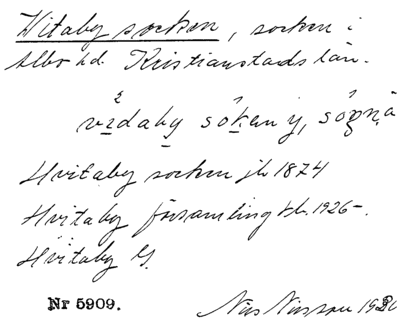 Vitaby socken, socken i
Albo hd. Kristianstads län.
Hvitaby socken jb 1874
Hvitaby församling kb. 1926-.
Hvitaby G.
Nr 5909.
Nils Nilsson